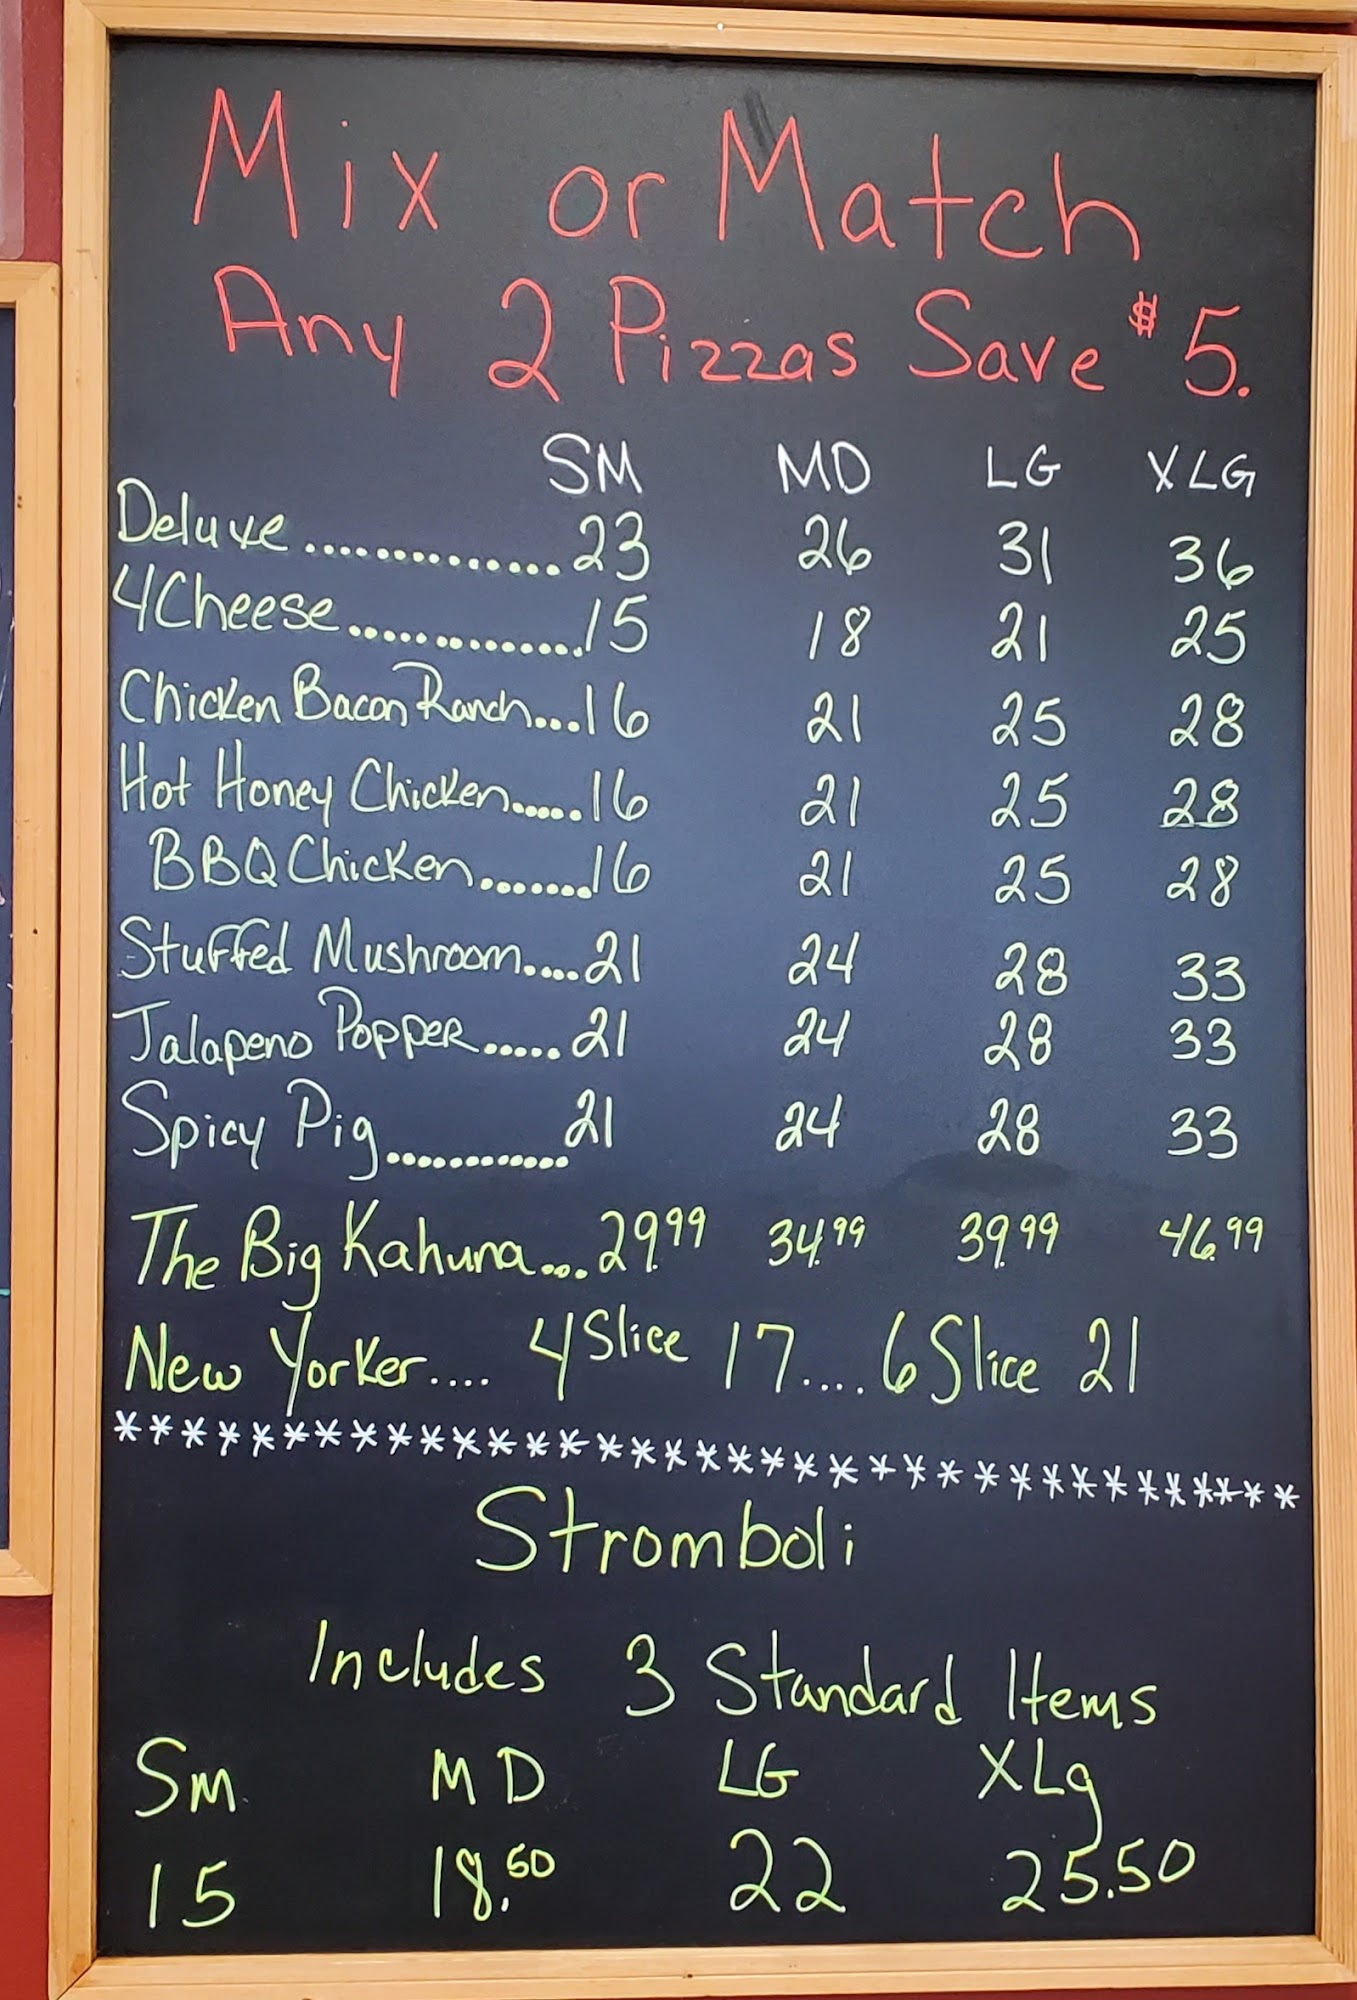 Mix or Match
Any 2 Pizzas Save $5.
SM MD LG XLG
Deluxe.............. 23 26 31 36
4Cheese.............. 15 18 21 25
Chicken Bacon Ranch... 16 21 25 28
Hot Honey Chicken..... 16 21 25 28
BBQ Chicken....... 16 21 25 28
Stuffed Mushroom.... 21 24 28 33
Jalapeno Popper..... 21 24 28 33
Spicy Pig............ 21 24 28 33
The Big Kahuna... 29.99 34.99 39.99 46.99
New Yorker.... 4 Slice 17.... 6 Slice 21
***********************************
Stromboli
Includes 3 Standard Items
Sm MD LG XLg
15 18.50 22 25.50